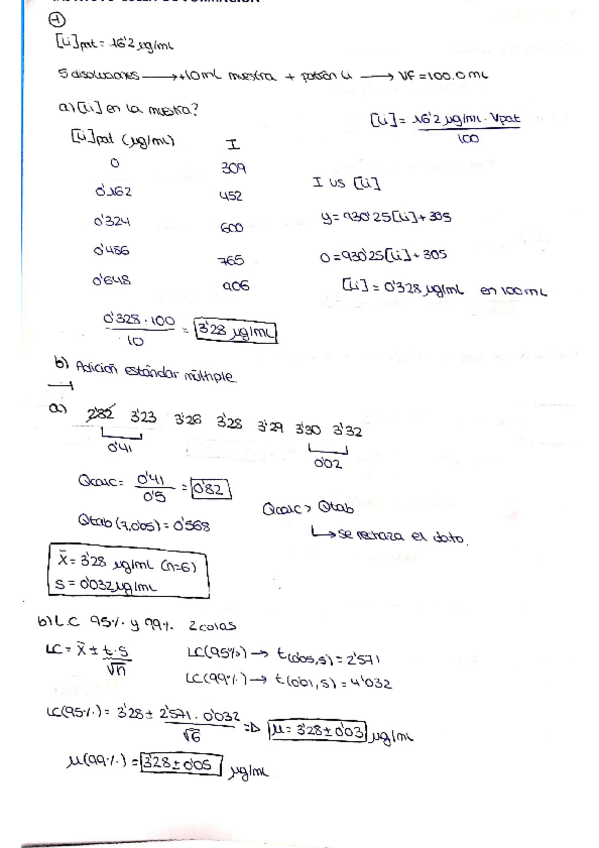 1
[Li]pat = 16'2 µg/mL
5 disoluciones → +10 mL muestra + patrón Li → VF = 100.0 mL
a) [Li] en la muestra?
[Li] = 16'2 µg/mL · Vpat / 100
[Li]pat (µg/mL) I
0 309
0'162 452
0'324 600
0'486 765
0'648 906
I vs [Li]
y = 930'25[Li] + 305
0 = 930'25[Li] + 305
[Li] = 0'328 µg/mL en 100 mL
0'328 · 100 / 10 = 3'28 µg/mL
b) Adición estándar múltiple.
a) 2'82 3'23 3'26 3'28 3'29 3'30 3'32
0'41 0'02
Qcalc = 0'41 / 0'5 = 0'82
Qcalc > Qtab
Qtab (7, 0'05) = 0'568
↳ se rechaza el dato.
X̄ = 3'28 µg/mL (n=6)
S = 0'032 µg/mL
b) L.C 95% y 99% 2 colas
LC = X̄ ± t·s / √n
LC(95%) → t(0'05,5) = 2'571
LC(99%) → t(0'01,5) = 4'032
LC(95%) = 3'28 ± 2'571 · 0'032 / √6 ⇒ µ = 3'28 ± 0'03 µg/mL
µ(99%) = 3'28 ± 0'05 µg/mL